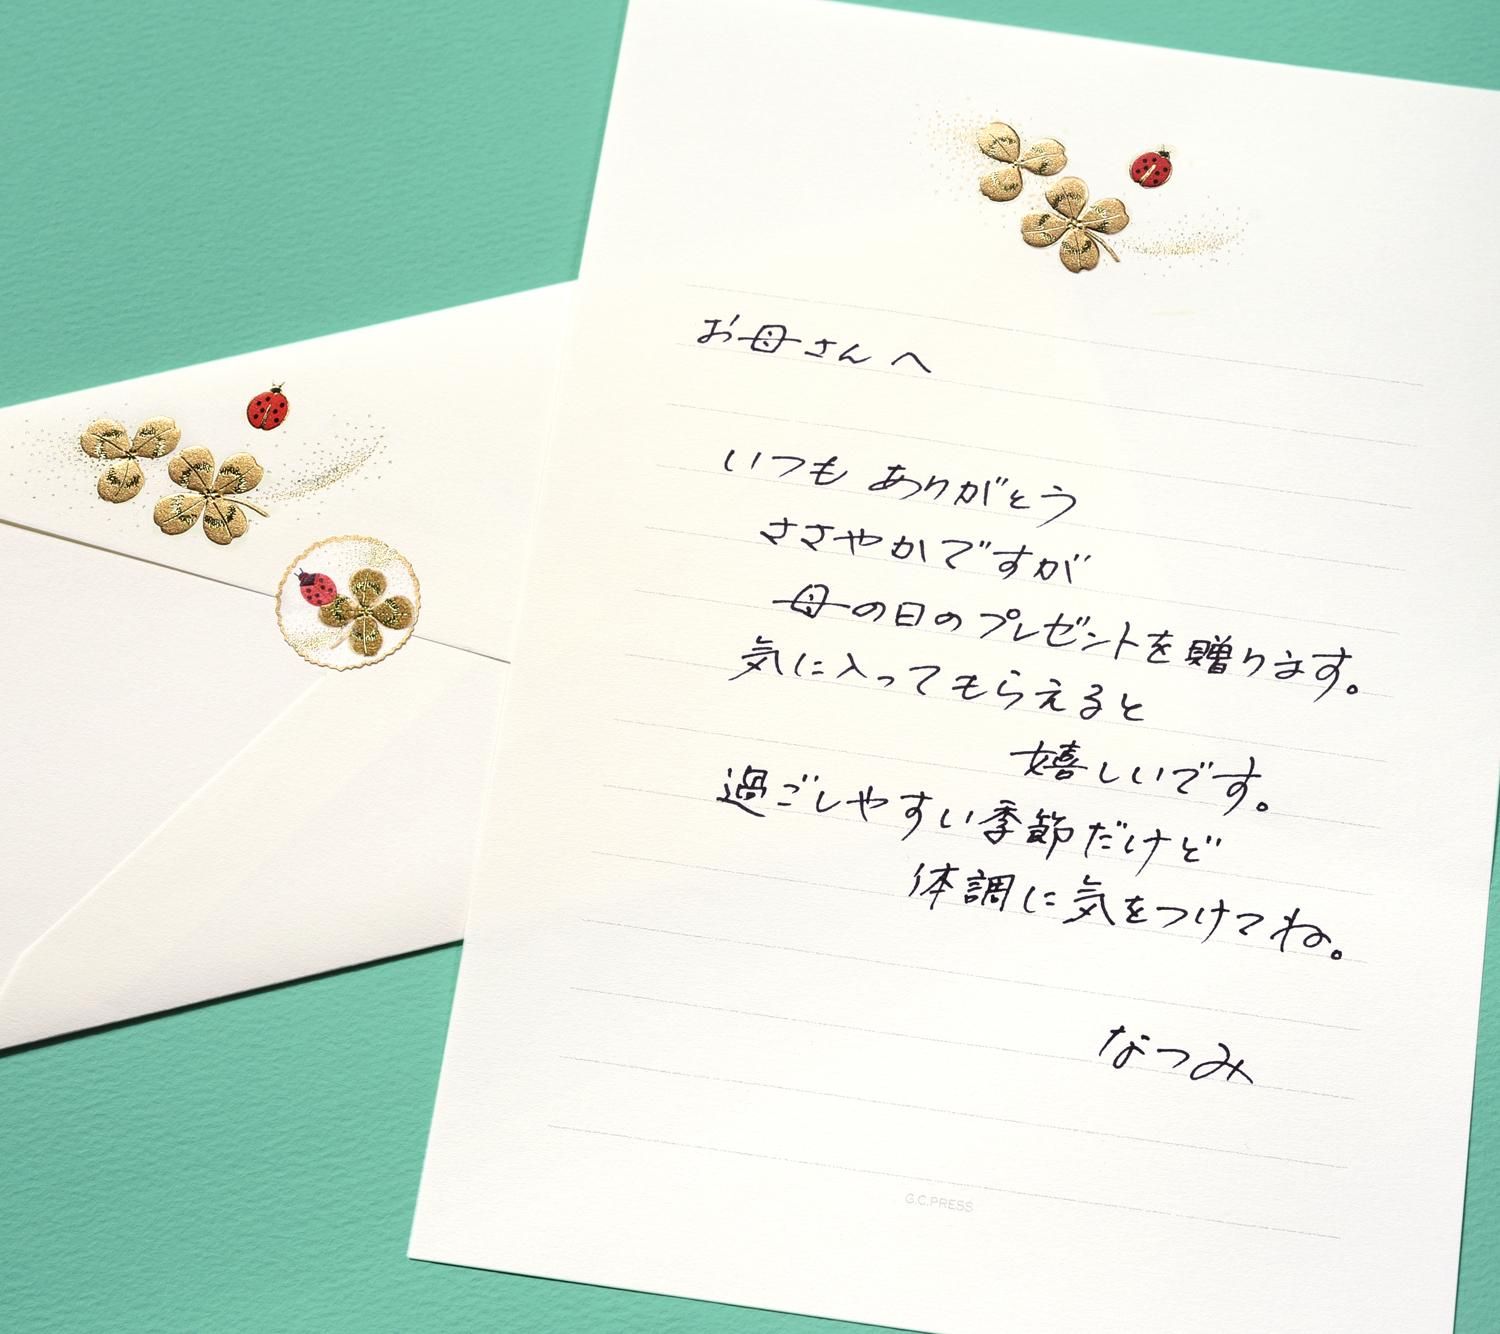 お母さんへ
いつも ありがとう
ささやかですが
母の日のプレゼントを贈ります。
気に入ってもらえると
嬉しいです。
過ごしやすい季節だけど
体調に気をつけてね。
なつみ
G.C.PRESS